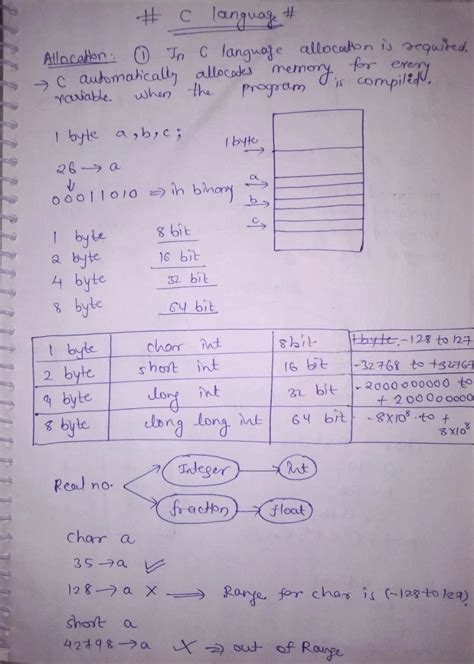 # C language #
Allocation: ① In C language allocation is required.
→ C automatically allocates memory for every
variable when the program is compiled.
1 byte a, b, c;
1 byte
26 → a
a
00011010 => in binary
b
c
1 byte 8 bit
2 byte 16 bit
4 byte 32 bit
8 byte 64 bit
1 byte char int 8 bit 1 byte -128 to 127
2 byte short int 16 bit -32768 to +32767
4 byte long int 32 bit -2000000000 to + 2000000000
8 byte long long int 64 bit -8x10⁸ to + 8x10⁸
Real no. Integer → int
fraction → float
char a
35 → a ✓
128 → a X => Range for char is (-128 to 127)
short a
42798 → a X => out of Range